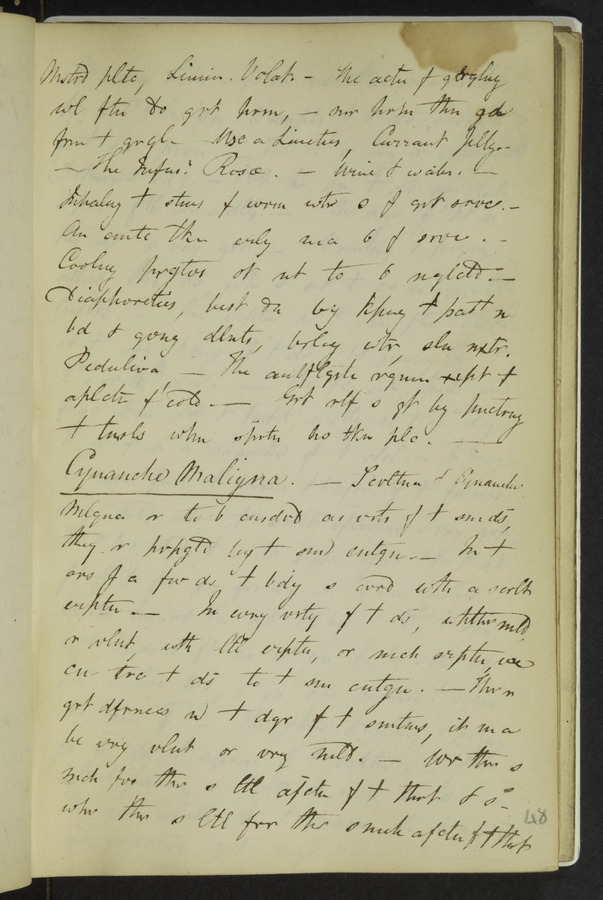 Mstrd plts, Linim. Volat. – The actn f grglng
wl ftn do grt hrm, – nor hrm thn gd
frm + grgl. – Use a Linctus, Currant Jelly. –
– The Infus: Rosæ. – Wine & water. –
Inhalng + stms f wrm wtr s f grt srvc. –
An emtc thn erly ma b f srvc. –
Coolng prgtvs ot nt to b nglctd. –
Diaphoretics, best dn by kpng + patt n
bd & gvng dlnts, brly wtr, sln mxtr.
Pediluvia – The antiflgstc rgmn xcpt +
aplctn f cold. – Grt rlf s gt by pnctrng
+ tnsls whn sprtn hs tkn plc. –
Cynanche Maligna. – Scrltna & Cynanche
Mlgna r to b cnsdrd as vrts of + sm ds,
they r prpgtd by + sm cntgn. – In +
crs f a fw ds + bdy s cvrd with a scrlt
erptn. – In evry vrty f + ds, whthr mld
r vlnt, wth ltl erptn, or mch erptn, we
cn trc + ds to + sm cntgn. – Thr s
grt dfrncs n + dgr f + smtms, it ma
be vry vlnt or vry mld. – Whr thr s
mch fvr thr s ltl afctn f + thrt &
whr thr s ltl fvr thr s mch afctn f + thrt
48